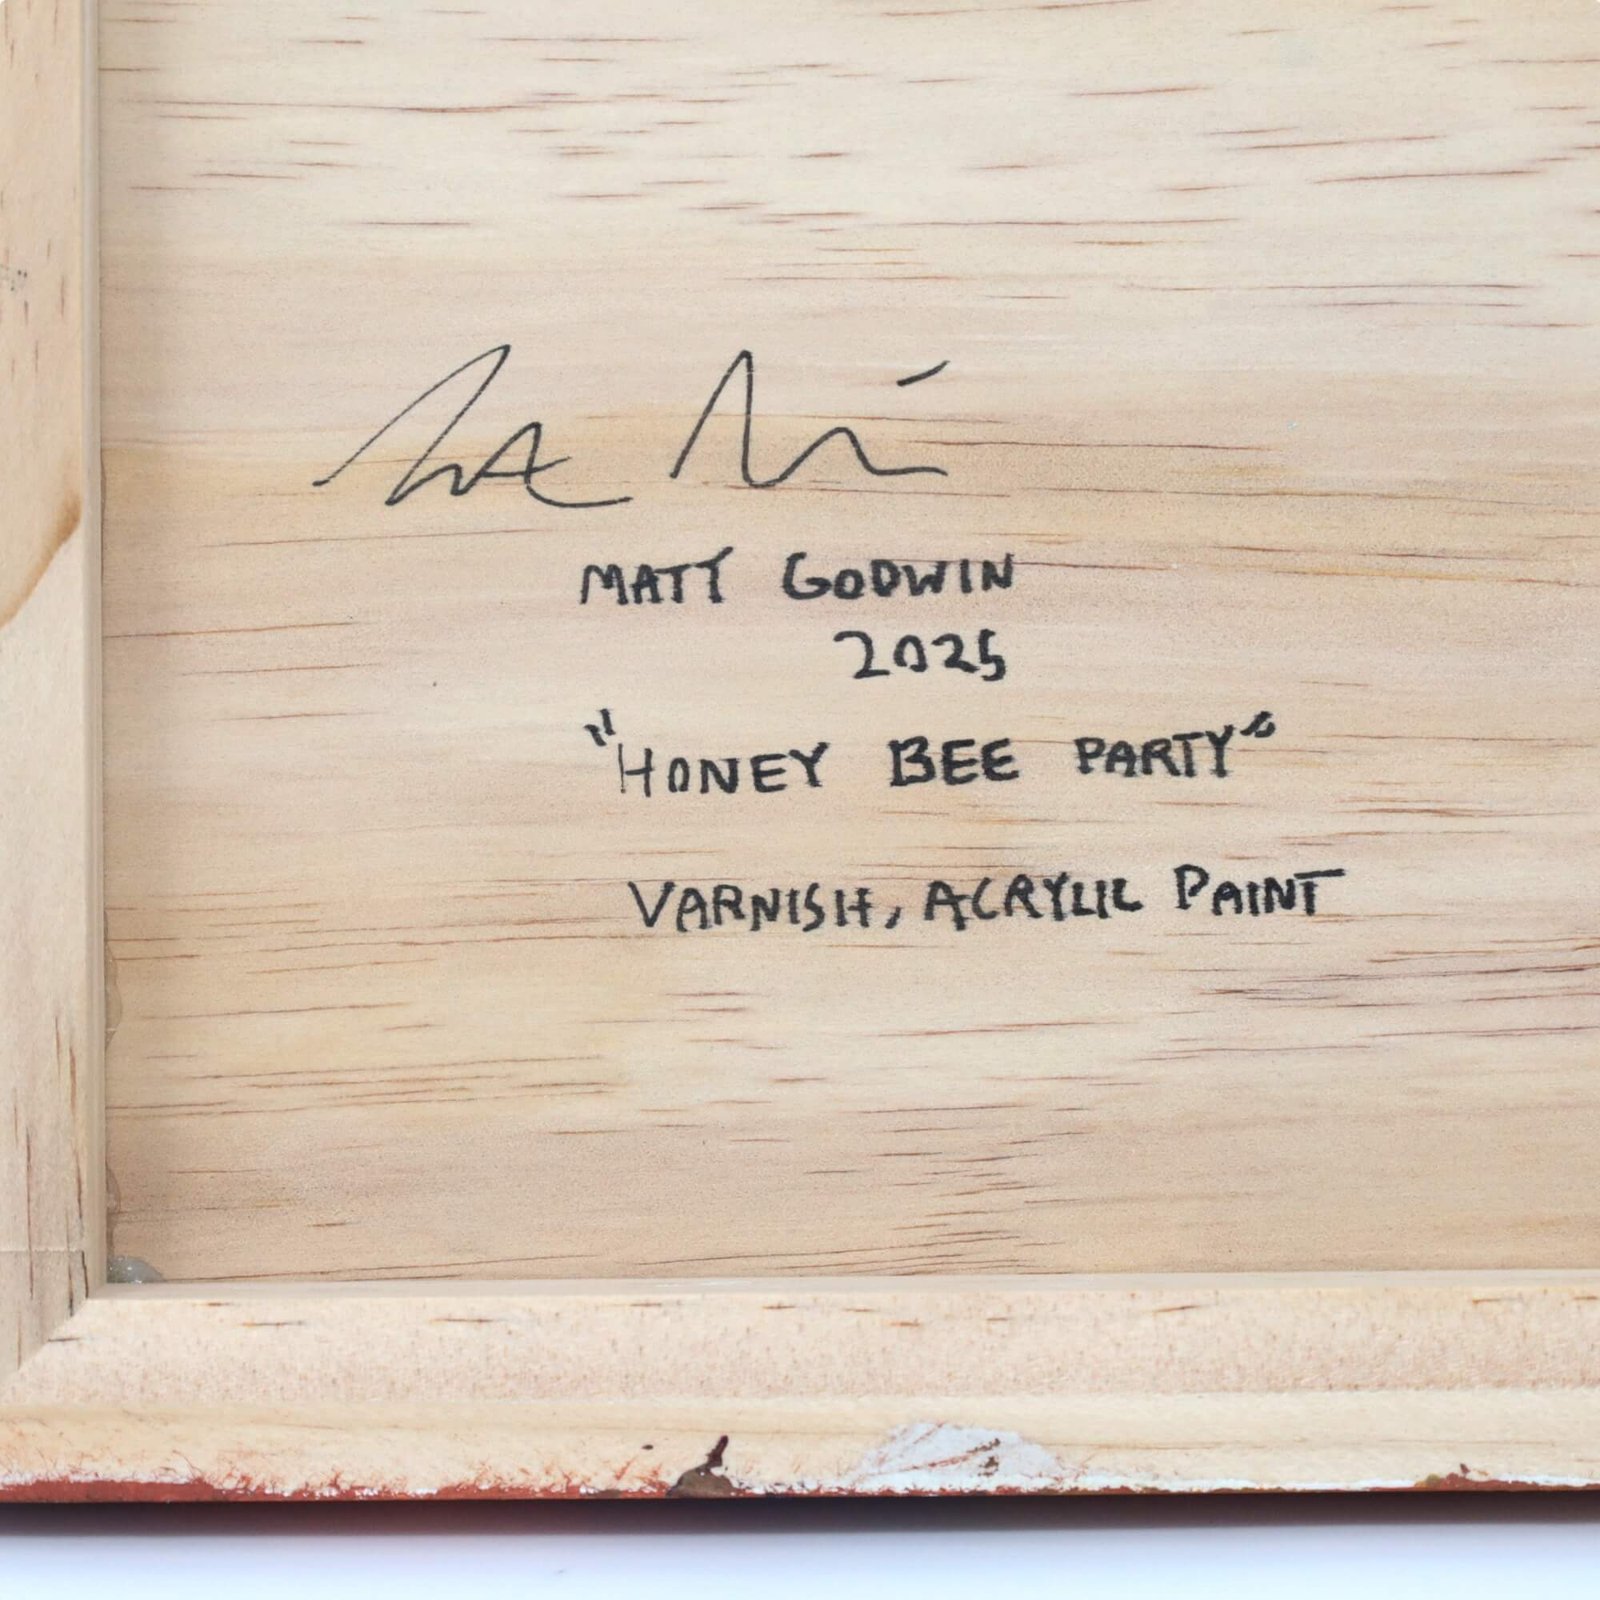 MATT GODWIN
2025
"HONEY BEE PARTY"
VARNISH, ACRYLIC PAINT